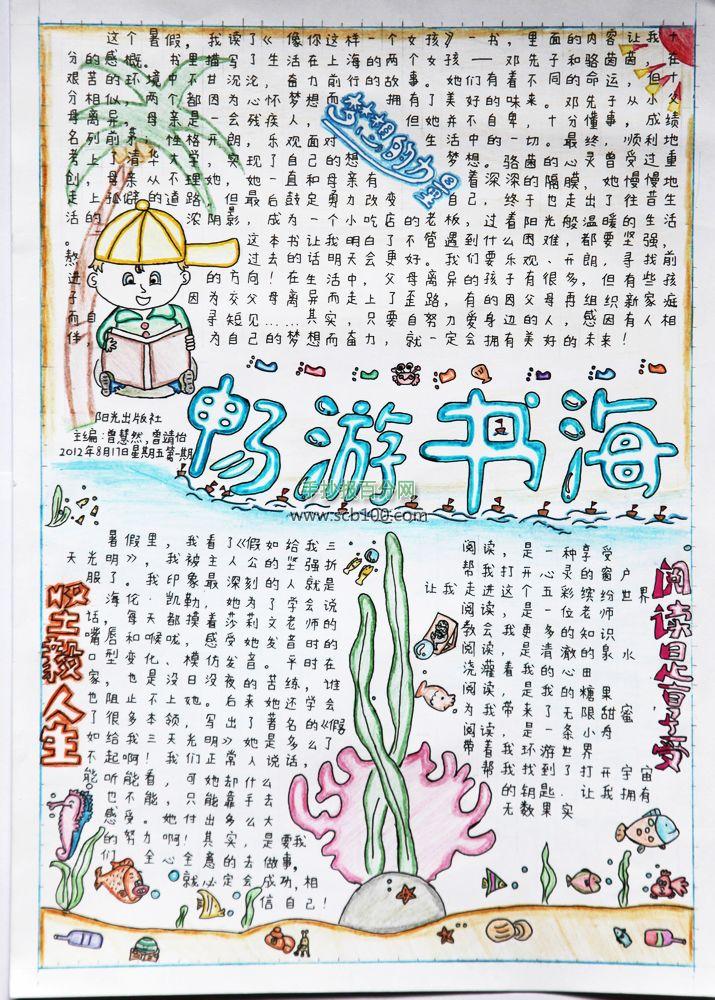 这个暑假，我读了《像你这样一个女孩》一书，里面的内容让我十
分的感慨。书里描写了生活在上海的两个女孩——邓先子和骆茵茵，在
艰苦的环境中不甘沉沦，奋力前行的故事。她们有着不同的命运，但十
分相似，两个都因为心怀梦想而 拥有了美好的味来。邓先子从小父
母离异，母亲是一会残疾人， 但她并不自卑，十分懂事，成绩
名列前茅，性格开朗，乐观面对 生活中的一切。最终，顺利地
考上了清华大学，实现了自己的想 梦想。骆茵的心灵曾受过重
创，母亲从不理她，她一直和母亲有 着深深的隔膜，她慢慢地
走上孤僻的道路，但最后鼓足勇力改变 自己，终于也走出了往昔生
活的 浓阴影，成为一个小吃店的老板，过着阳光般温暖的生活
。 这本书让我明白了不管遇到什么困难，都要坚强，
熬 过去的话明天会更好。我们要乐观、开朗，寻找前
进 的方向！在生活中，父母离异的孩子有很多，但有些孩
子 因为交父母离异而走上了歪路，有的因父母再组织新家庭
而自 寻短见……其实，只要自努力爱身边的人，感因有人相
伴， 为自己的梦想而奋力，就一定会拥有美好的未来！
梦想的力量
阳光出版社
主编：曾慧然，曾靖怡
2012年8月17日星期五第一期
畅游书海
手抄报百分网
www.scb100.com
坚毅人生
暑假里，我看了《假如给我三
天光明》，我被主人公的坚强折
服了。我印象最深刻的人就是
海伦·凯勒，她为了学会说
话，每天都摸着莎莉文老师的
嘴唇和喉咙，感受她发音时的
口型变化、模仿发音。平时在
家，也是没日没夜的苦练，谁
也阻止不上她。后来她还学会
了很多本领，写出了著名的《假
如给我三天光明》她是多么了
不起啊！我们正常人说话，
能听能看，可她却什么
也不能，只能靠手去
感受。她付出多么大
的努力啊！其实，是要我
们 全心全意的去做事，
就必定会成功，相
信自己！
阅读，是一种享受
帮我打开心灵的窗户
让我走进这个五彩缤纷世界
阅读，是一位老师
教会我更多的知识
阅读，是清澈的泉水
浇灌着我的心田
阅读，是我的糖果
为我带来了无限甜蜜，
阅读，是一条小舟
带着我环游世界
帮我找到了打开宇宙
的钥匙．让我拥有
无数果实
阅读是享受